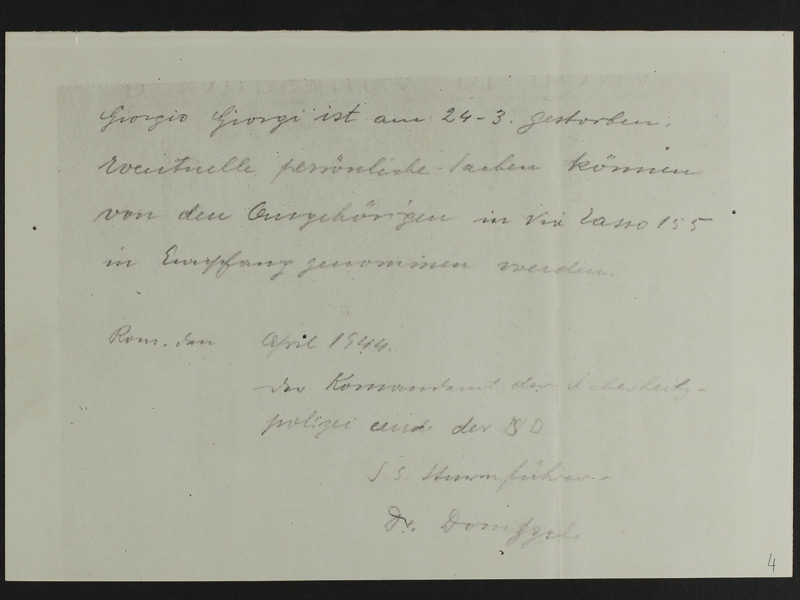 Giorgio Giorgi ist am 24-3. gestorben.
Eventuelle persönliche Sachen können
von den Angehörigen in Via Tasso 155
in Empfang genommen werden.
Rom, den April 1944.
Der Komandant der Sicherheitz-
polizei und der SD
S.S. Sturmführer
Dr.
4